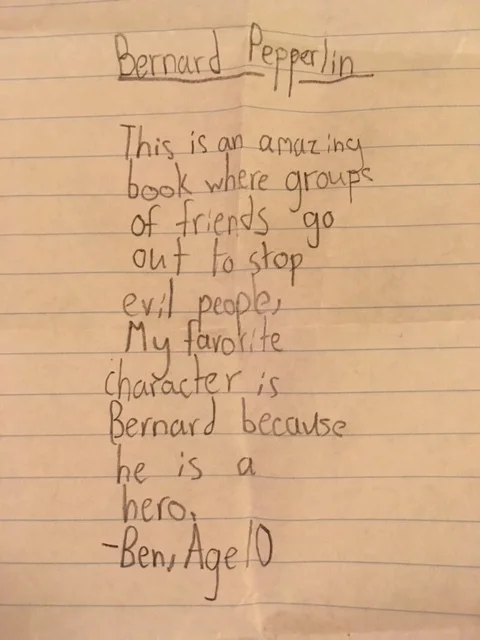 Bernard Pepperlin
This is an amazing
book where groups
of friends go
out to stop
evil people,
My favorite
character is
Bernard because
he is a
hero.
-Ben, Age 10